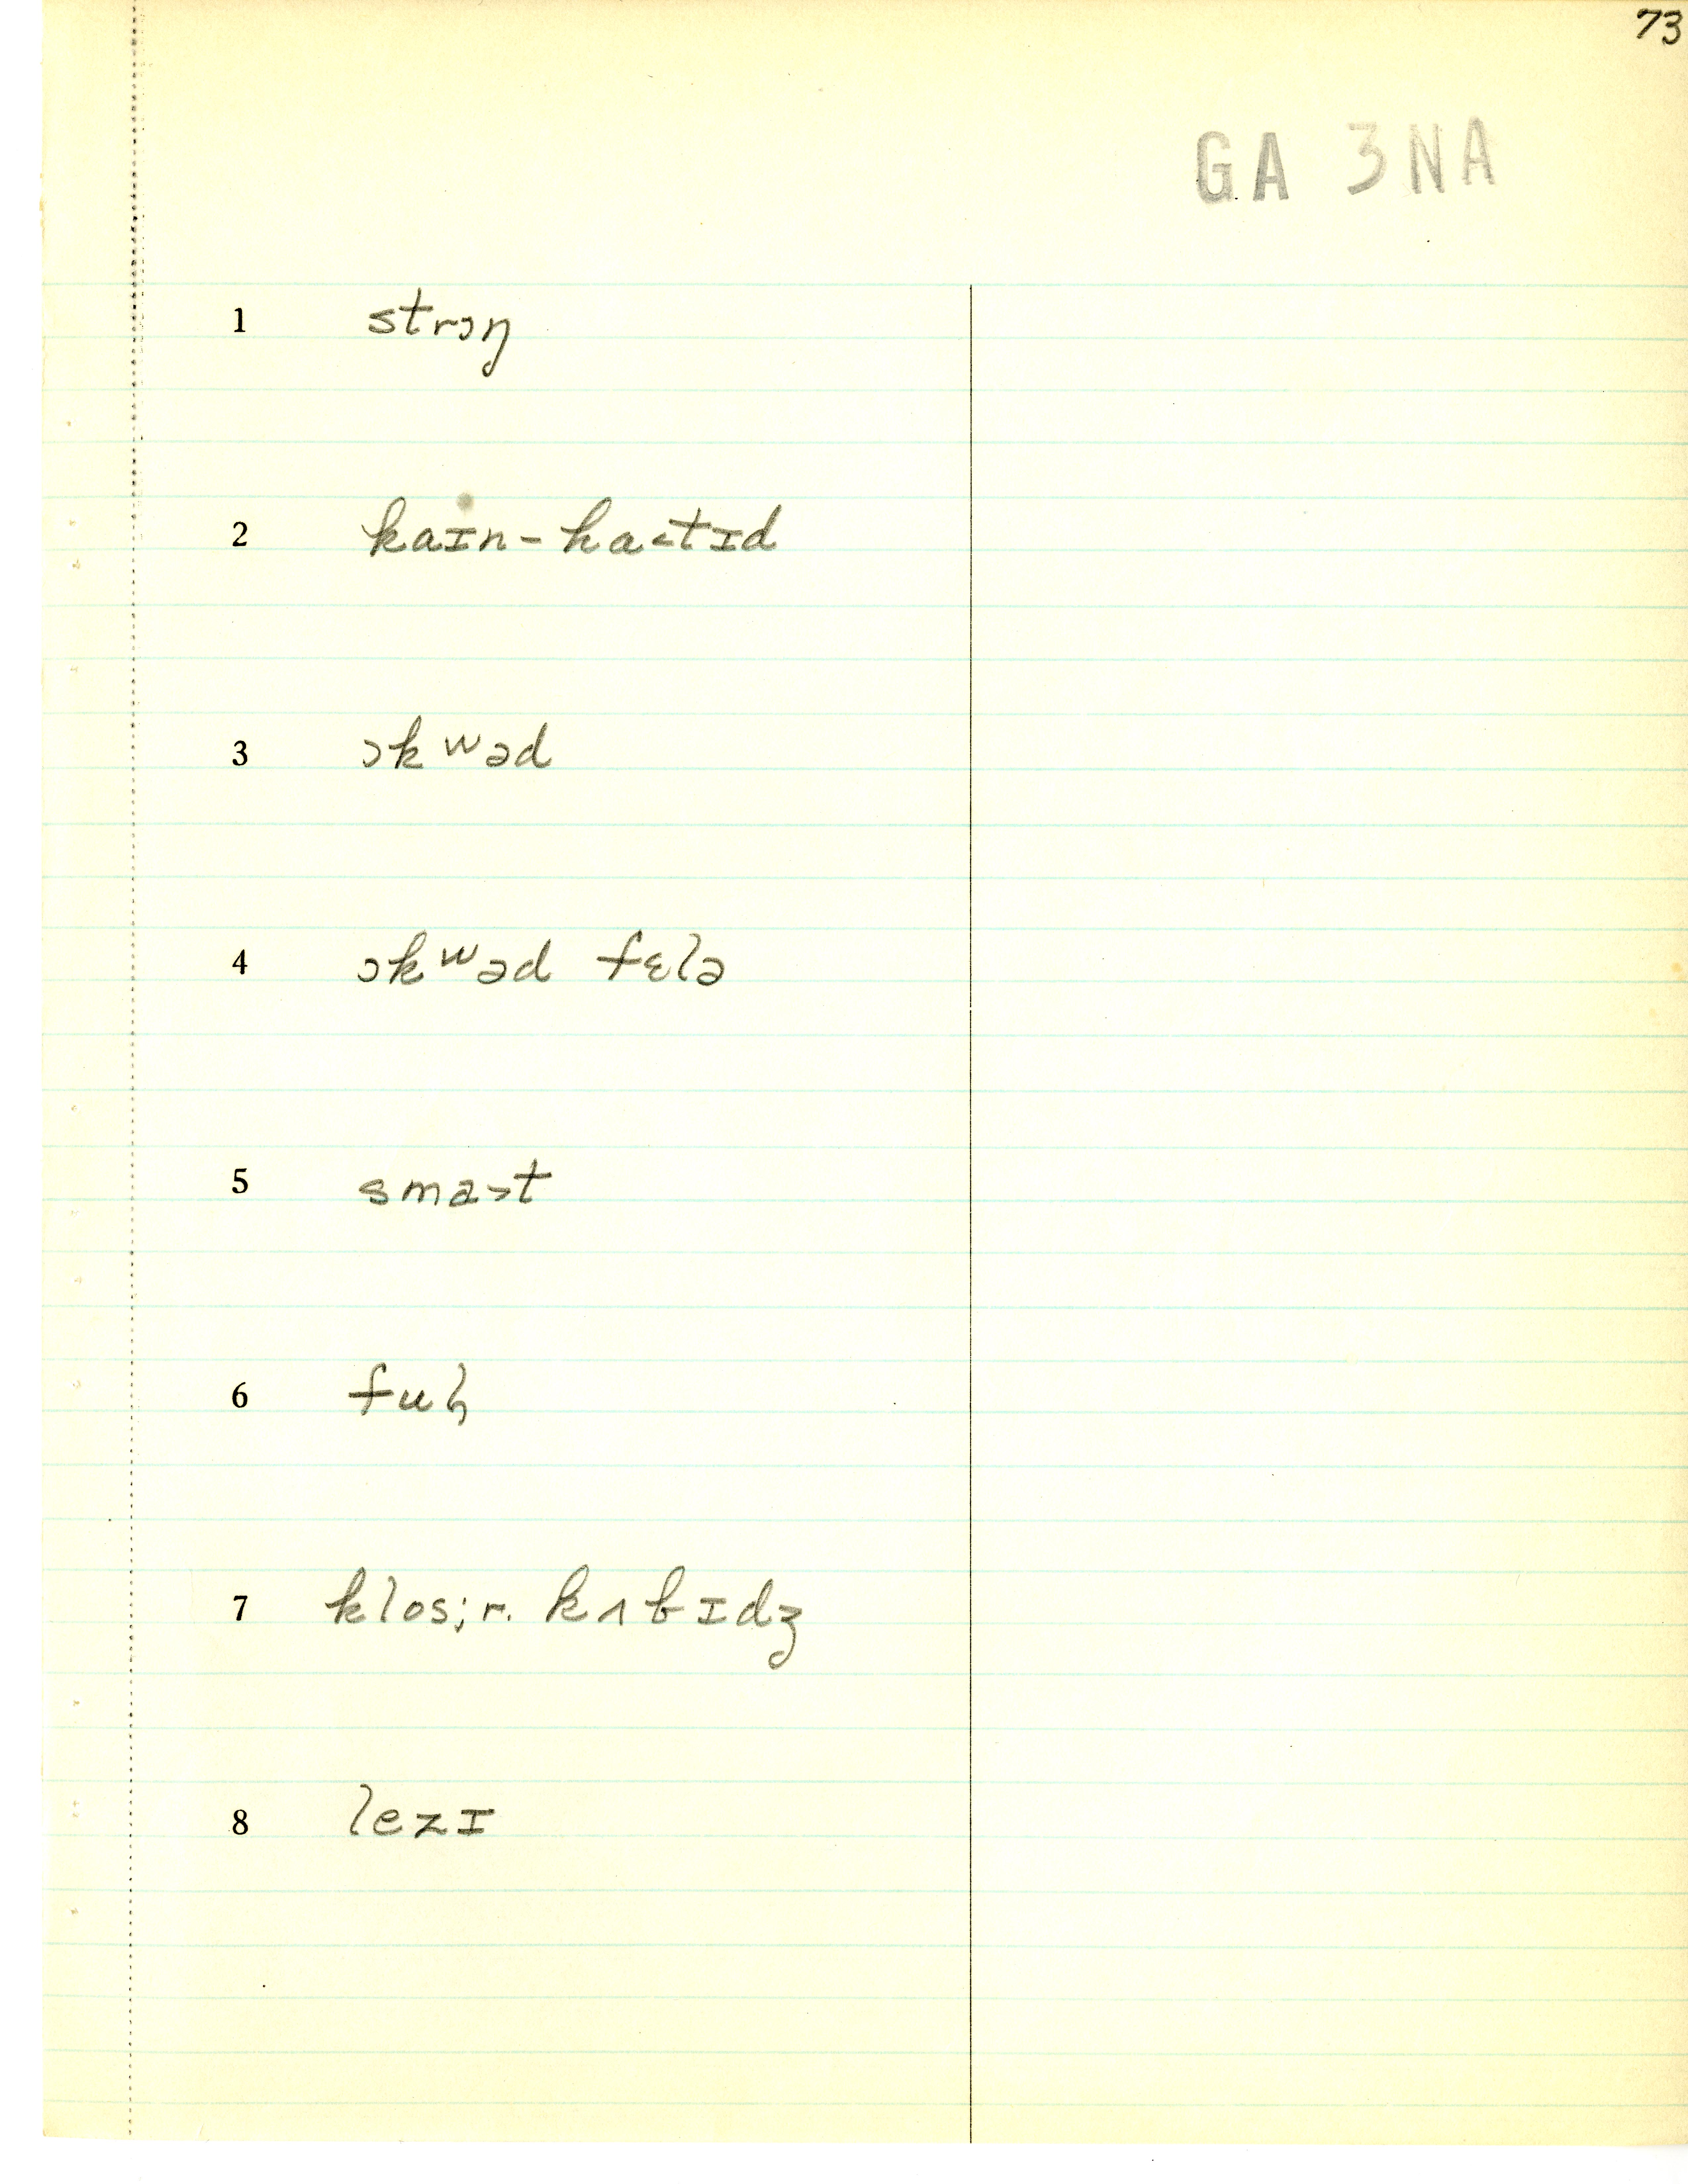 73
GA 3NA
1 strɔŋ
2 kaɪn-ha˂tɪd
3 ɔkʷəd
4 ɔkʷəd fɛlə
5 sma˃t
6 fuɫ
7 klos; r. kʌbɪdʒ
8 lezɪ